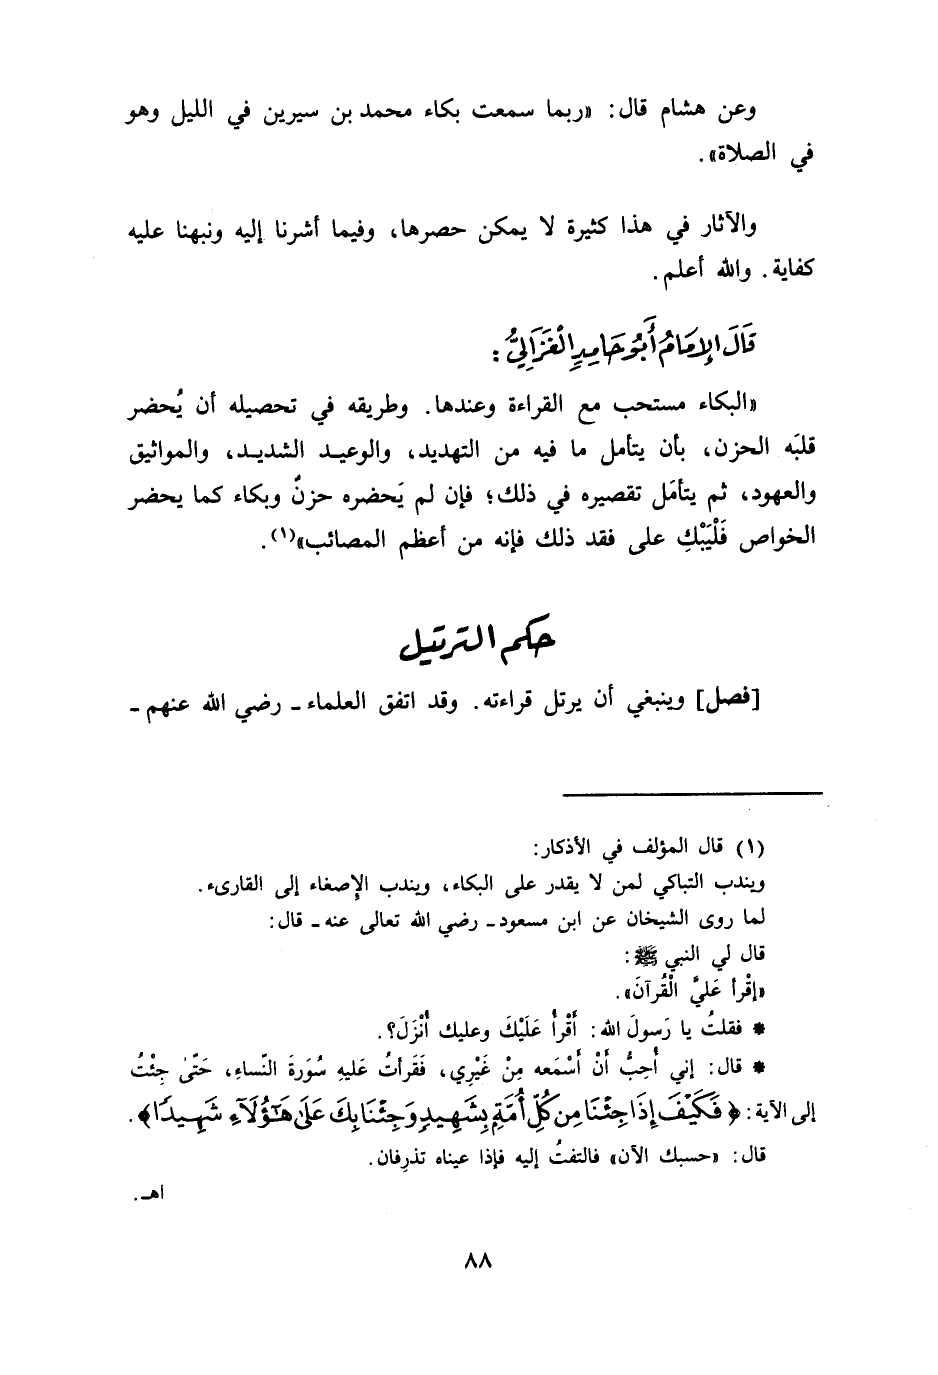 وعن هشام قال: «ربما سمعت بكاء محمد بن سيرين في الليل وهو
في الصلاة».
والآثار في هذا كثيرة لا يمكن حصرها، وفيما أشرنا إليه ونبهنا عليه
كفاية. والله أعلم.
قَالَ الإِمَامُ أَبُو حَامِدٍ الْغَزَالِيُّ:
«البكاء مستحب مع القراءة وعندها. وطريقه في تحصيله أن يُحضر
قلبَه الحزن، بأن يتأمل ما فيه من التهديد، والوعيد الشديد، والمواثيق
والعهود، ثم يتأمَل تقصيره في ذلك؛ فإن لم يَحضره حزنٌ وبكاء كما يحضر
الخواص فَلْيَبْكِ على فقد ذلك فإنه من أعظم المصائب»(١).
حكم الترتيل
[فصل] وينبغي أن يرتل قراءته. وقد اتفق العلماء ـ رضي الله عنهم ـ
(١) قال المؤلف في الأذكار:
ويندب التباكي لمن لا يقدر على البكاء، ويندب الإِصغاء إلى القارىء.
لما روى الشيخان عن ابن مسعود ـ رضي الله تعالى عنه ـ قال:
قال لي النبي ﷺ:
«إقْرأ عَليَّ الْقُرآنَ».
* فقلتُ يا رَسولَ الله: أَقْرأُ عَلَيْكَ وعليك أُنْزَلَ؟.
* قال: إني أُحِبُّ أَنْ أَسْمَعه مِنْ غَيْرِي، فَقَرأتُ عَليهِ سُوَرةَ النّساءِ، حَتّىٰ جِئْتُ
إلى الآية: ﴿فَكَيْفَ إِذَا جِئْنَا مِن كُلِّ أُمَّةٍ بِشَهِيدٍ وَجِئْنَا بِكَ عَلَىٰ هَـٰٓؤُلَآءِ شَهِيدًا﴾.
قال: «حسبك الآن» فالتفتُ إليه فإذا عيناه تذرِفان.
اهـ.
٨٨